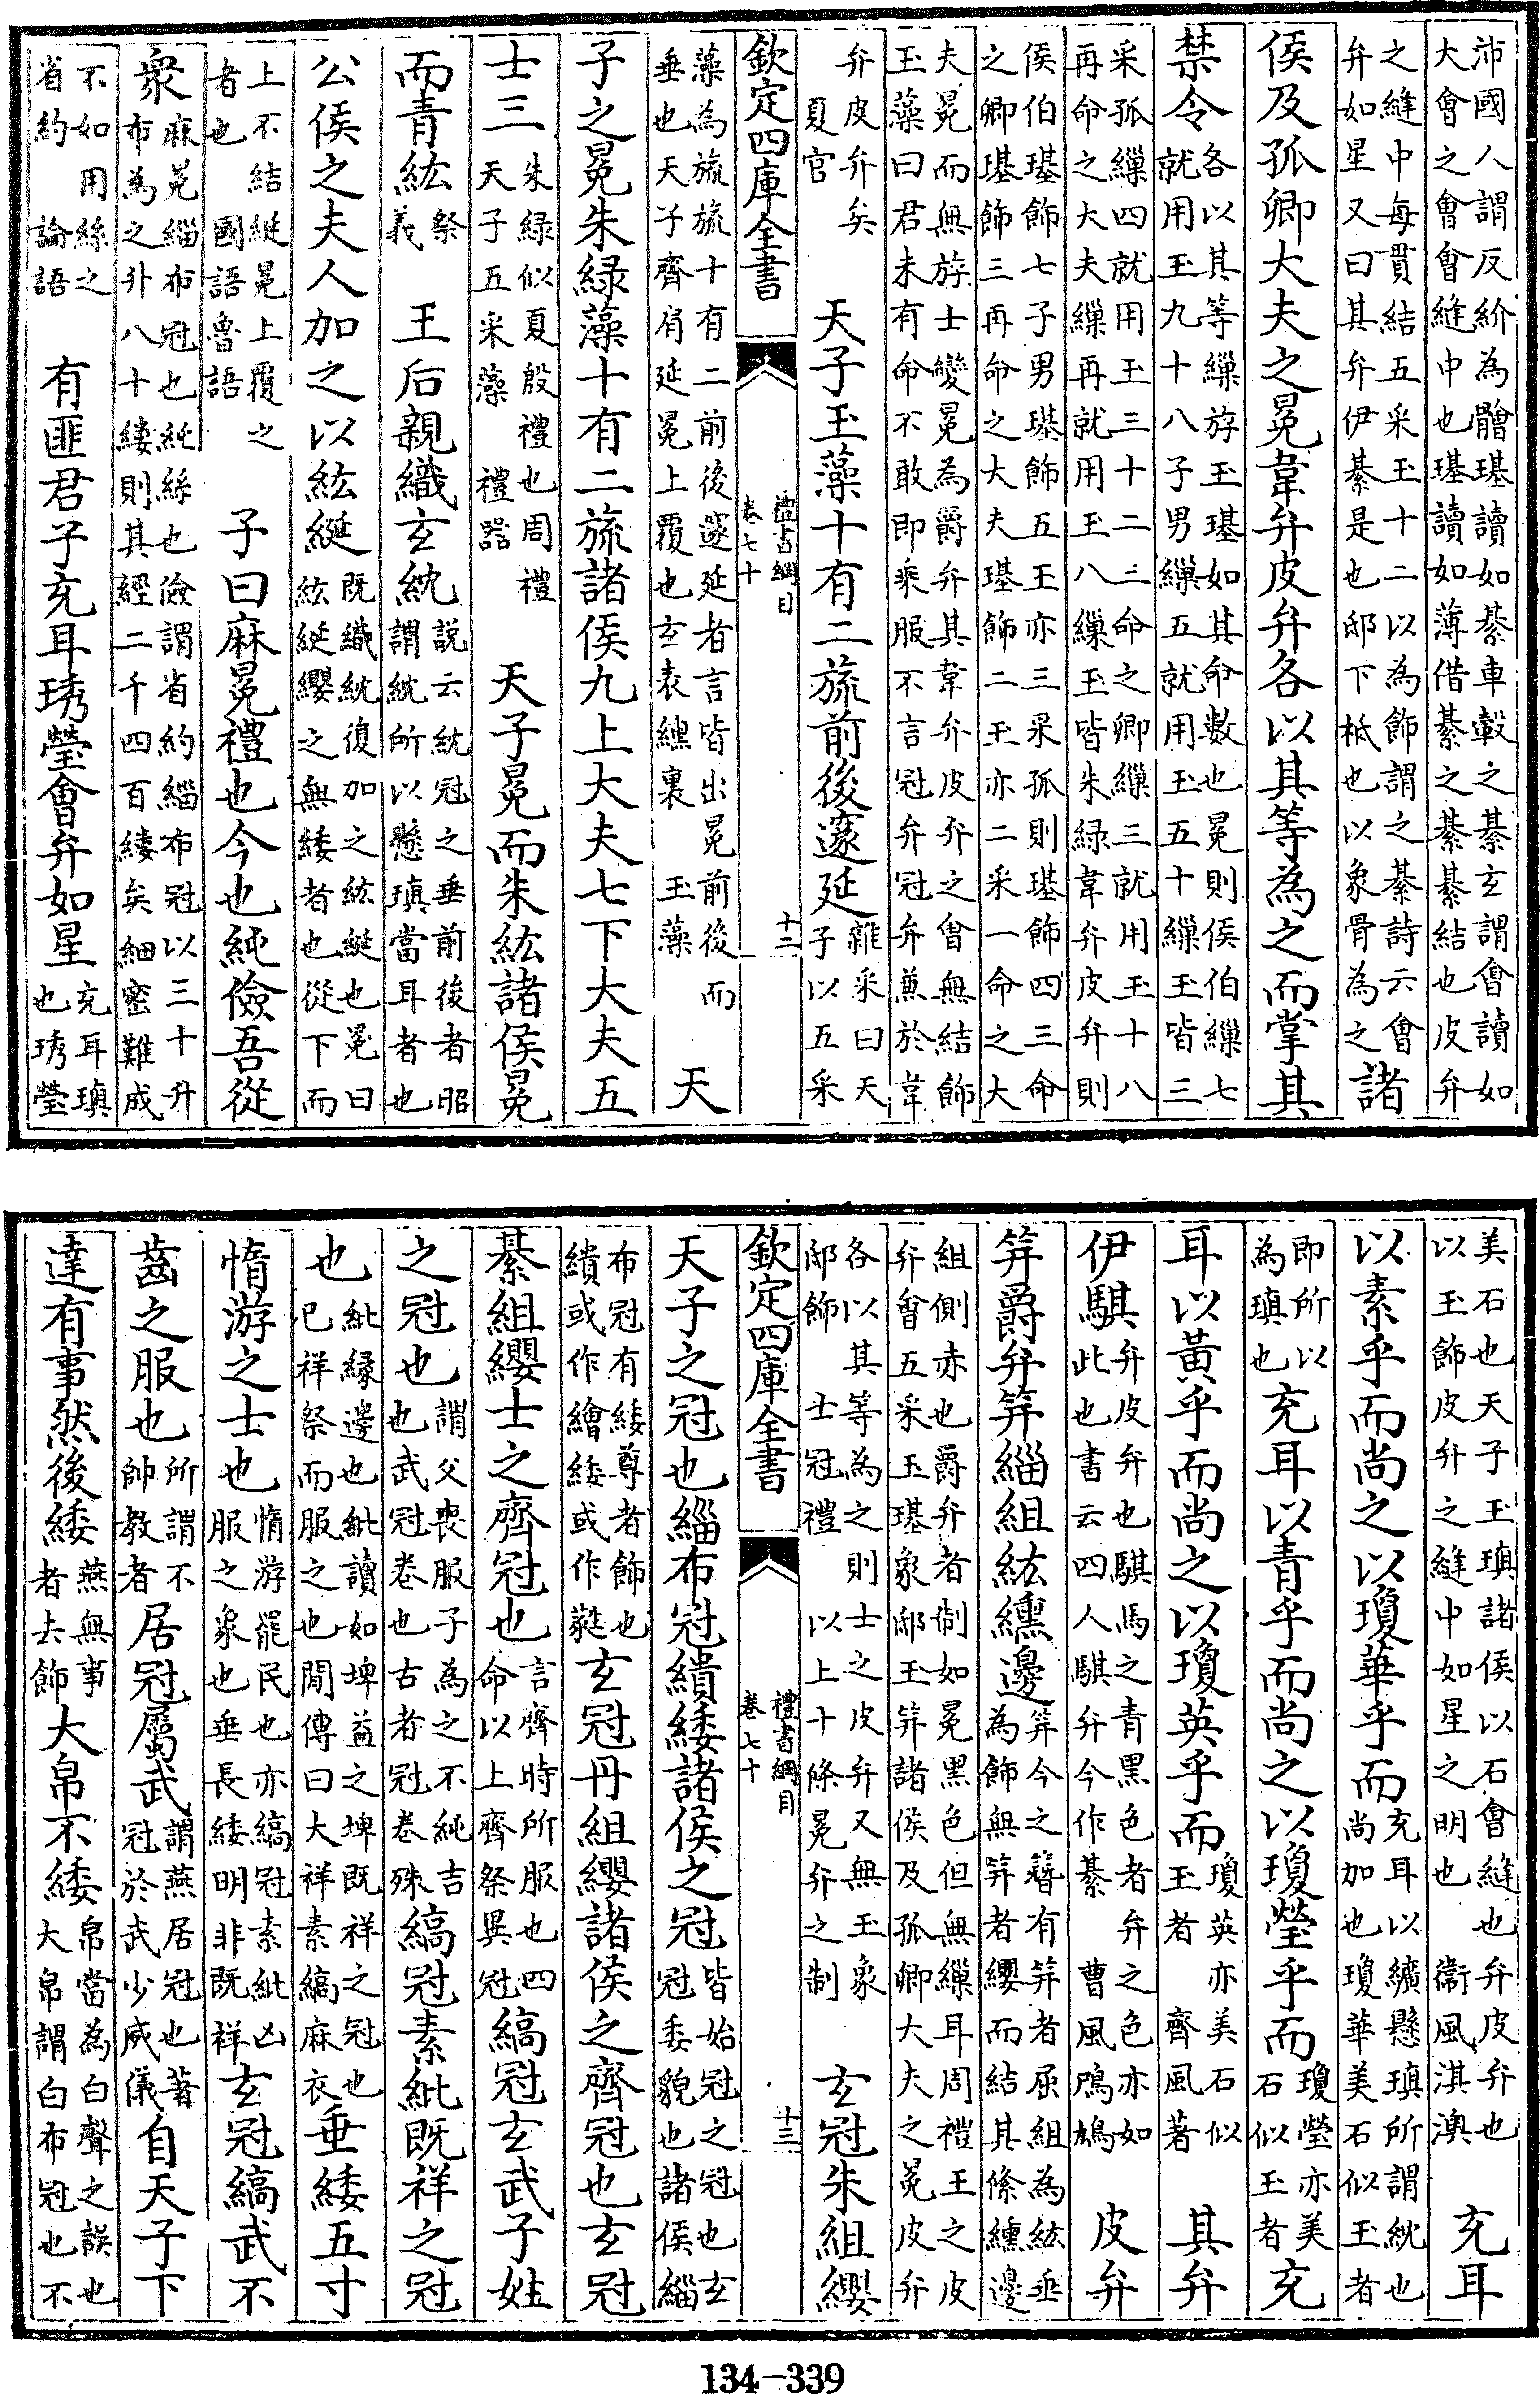 沛國人謂反紒為䯤璂讀如綦車轂之綦玄謂會讀如
大會之會會縫中也璂讀如薄借綦之綦綦結也皮弁
之縫中每貫結五采玉十二以為飾謂之綦詩云會
弁如星又曰其弁伊綦是也邸下柢也以象骨為之 諸
侯及孤卿大夫之冕韋弁皮弁各以其等為之而掌其
禁令 各以其等繅斿玉璂如其命數也冕則侯伯繅七
就用玉九十八子男繅五就用玉五十繅玉皆三
采孤繅四就用玉三十二三命之卿繅三就用玉十八
再命之大夫繅再就用玉八繅玉皆朱緑韋弁皮弁則
侯伯璂飾七子男璂飾五玉亦三采孤則璂飾四三命
之卿璂飾三再命之大夫璂飾二玉亦二采一命之大
夫冕而無斿士變冕為爵弁其韋弁皮弁之會無結飾
玉藻曰君未有命不敢即乘服不言冠弁冠弁兼於韋
弁皮弁矣
夏官 天子玉藻十有二旒前後邃延 雜采曰天
子以五采
欽定四庫全書 禮書綱目 卷七十 十二
藻為旒旒十有二前後邃延者言皆出冕前後而
垂也天子齊肩延冕上覆也玄表纁裏 玉藻 天
子之冕朱緑藻十有二旒諸侯九上大夫七下大夫五
士三 朱緑似夏殷禮也周禮
天子五采藻 禮器 天子冕而朱紘諸侯冕
而青紘 祭
義 王后親織玄紞 說云紞冠之垂前後者昭
謂紞所以懸瑱當耳者也
公侯之夫人加之以紘綖 既織紞復加之紘綖也冕曰
紘綖纓之無緌者也從下而
上不結綖冕上覆之
者也 國語魯語 子曰麻冕禮也今也純儉吾從
衆 麻冕緇布冠也純絲也儉謂省約緇布冠以三十升
布為之升八十縷則其經二千四百縷矣細密難成
不如用絲之
省約 論語 有匪君子充耳琇瑩會弁如星 充耳瑱
也琇瑩
美石也天子玉瑱諸侯以石會縫也弁皮弁也
以玉飾皮弁之縫中如星之明也 衞風淇澳 充耳
以素乎而尚之以瓊華乎而 充耳以纊懸瑱所謂紞也
尚加也瓊華美石似玉者
即所以
為瑱也 充耳以青乎而尚之以瓊瑩乎而 瓊瑩亦美
石似玉者 充
耳以黃乎而尚之以瓊英乎而 瓊英亦美石似
玉者 齊風著 其弁
伊騏 弁皮弁也騏馬之青黑色者弁之色亦如
此也書云四人騏弁今作綦 曹風鳲鳩 皮弁
笄爵弁笄緇組紘纁邊 笄今之簪有笄者屈組為紘垂
為飾無笄者纓而結其絛纁邊
組側赤也爵弁者制如冕黑色但無繅耳周禮王之皮
弁會五采玉璂象邸玉笄諸侯及孤卿大夫之冕皮弁
各以其等為之則士之皮弁又無玉象
邸飾 士冠禮 以上十條冕弁之制 玄冠朱組纓
欽定四庫全書 禮書綱目 卷七十 十三
天子之冠也緇布冠繢緌諸侯之冠 皆始冠之冠也玄
冠委貌也諸侯緇
布冠有緌尊者飾也
繢或作繪緌或作蕤 玄冠丹組纓諸侯之齊冠也玄冠
綦組纓士之齊冠也 言齊時所服也四
命以上齊祭異冠 縞冠玄武子姓
之冠也 謂父喪服子為之不純吉
也武冠卷也古者冠卷殊 縞冠素紕既祥之冠
也 紕緣邊也紕讀如埤益之埤既祥之冠也
已祥祭而服之也閒傳曰大祥素縞麻衣 垂緌五寸
惰游之士也 惰游罷民也亦縞冠素紕凶
服之象也垂長緌明非既祥 玄冠縞武不
齒之服也 所謂不
帥教者 居冠屬武 謂燕居冠也著
冠於武少威儀 自天子下
達有事然後緌 燕無事
者去飾 大帛不緌 帛當為白聲之誤也
大帛謂白布冠也不
134-339